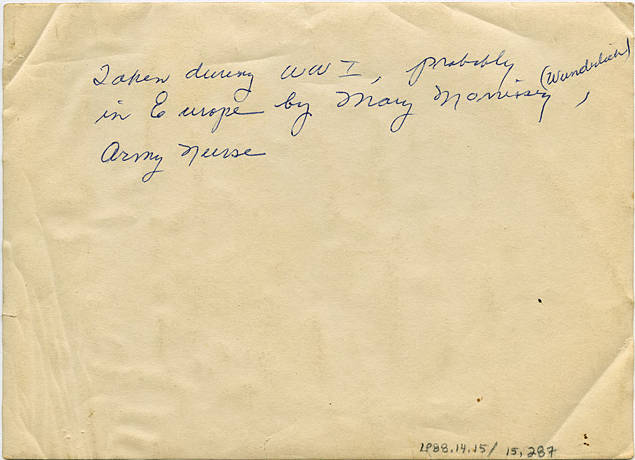 Taken during WW I, probably
in Europe by Mary Morrissey (Wunderlich),
Army Nurse
1988.14.15/ 15,287